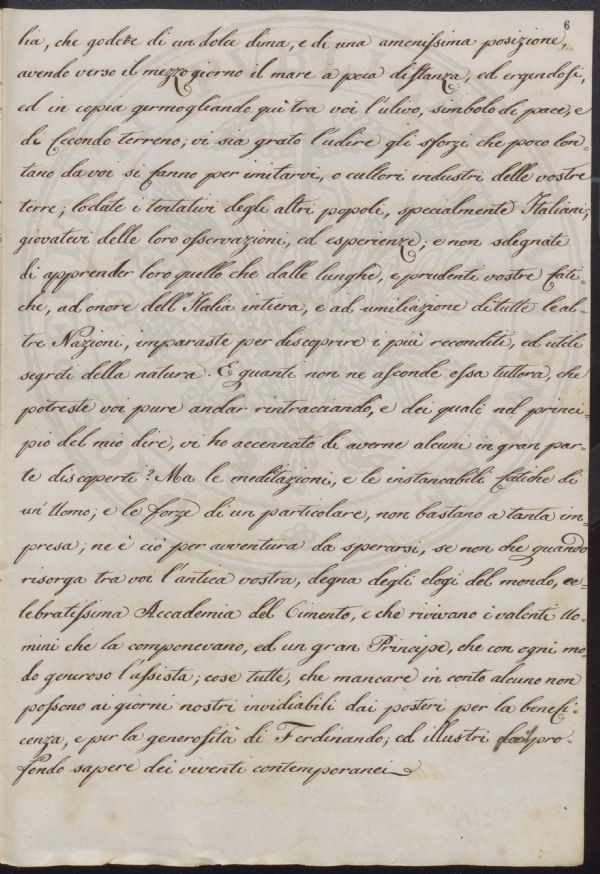 6
lia, che godete di un dolce clima, e di una amenissima posizione,
avendo verso il mezzo giorno il mare a poca distanza, ed ergendosi,
ed in copia germogliando quì tra voi l'ulivo, simbolo di pace, e
di fecondo terreno; vi sia grato l'udire gli sforzi che poco lon-
tano da voi si fanno per imitarvi, o cultori industri delle vostre
terre; lodate i tentativi degli altri popoli, specialmente Italiani;
giovatevi delle loro osservazioni, ed esperienze; e non sdegnate
di apprender loro quello che dalle lunghe, e prudenti vostre fati-
che, ad onore dell'Italia intiera, e ad umiliazione di tutte le al-
tre Nazioni, imparaste per discoprire i più reconditi, ed utili
segreti della natura. E quanti non ne asconde essa tuttora, che
potreste voi pure andar rintracciando, e dei quali nel princi-
pio del mio dire, vi ho accennato di averne alcuni in gran par-
te discoperti? Ma le meditazioni, e le instancabili fatiche di
un'Uomo; e le forze di un particolare, non bastano a tanta im-
presa; ne è ciò per avventura da sperarsi, se non che quando
risorga tra voi l'antica vostra, degna degli elogi del mondo, ce-
lebratissima Accademia del Cimento, e che rivivano i valenti Uo-
mini che la componevano, ed un gran Principe, che con ogni mo-
do generoso l'assista; cose tutte, che mancare in conto alcuno non
possono ai giorni nostri invidiabili dai posteri per la benefi-
cenza, e per la generosità di Ferdinando; ed illustri pel pro-
fondo sapere dei viventi contemporanei